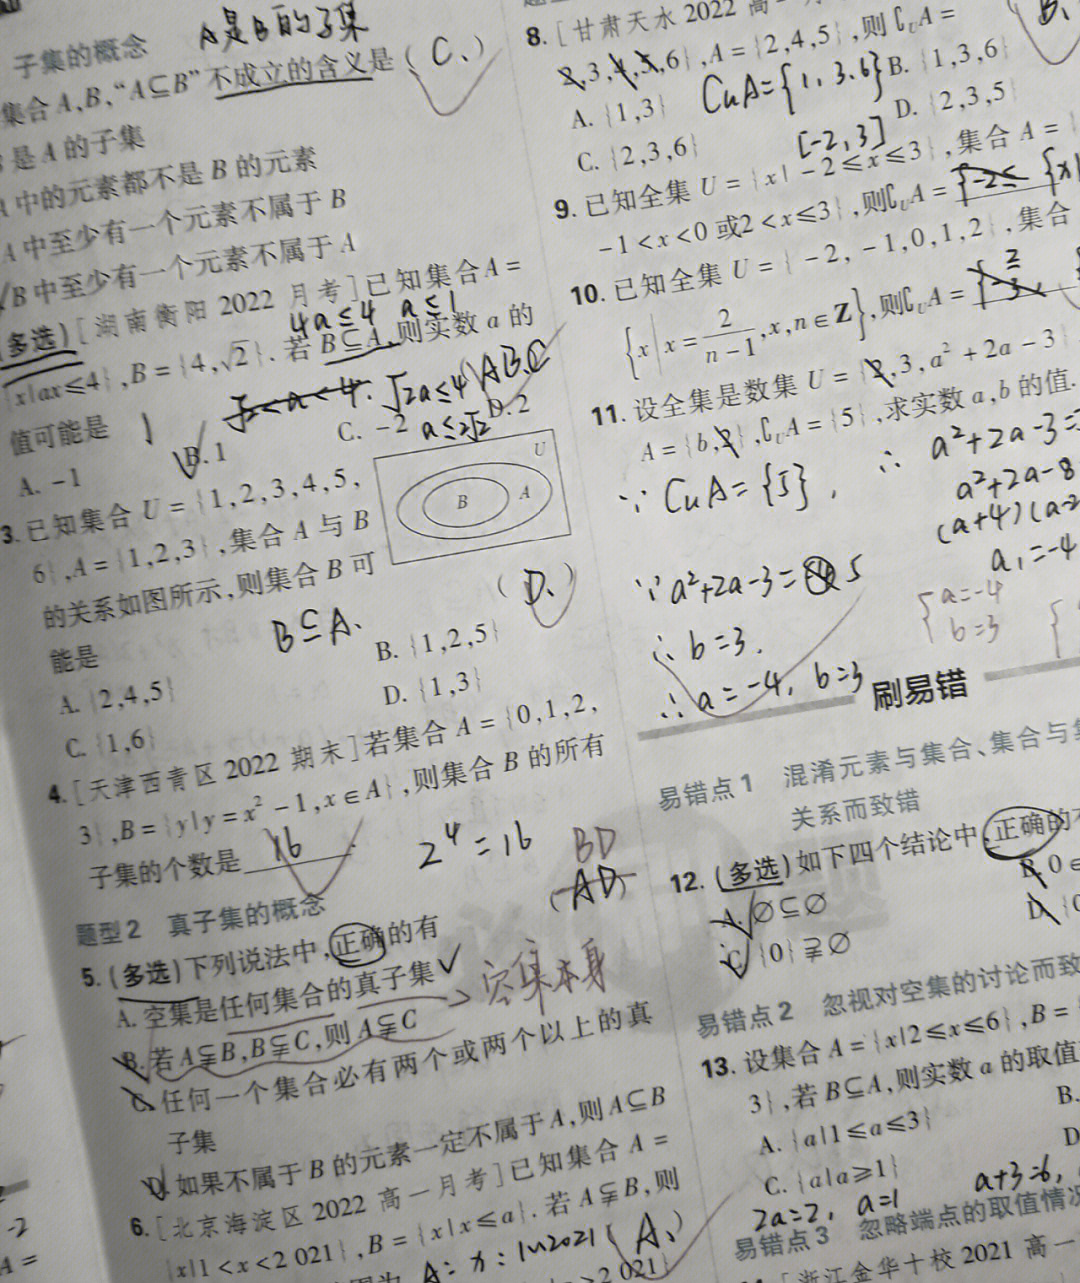 子集的概念
A是B的子集
集合A,B,“A⊆B”不成立的含义是(C、)
是A的子集
中的元素都不是B的元素
A中至少有一个元素不属于B
B中至少有一个元素不属于A
(多选)[湖南衡阳2022月考]已知集合A=
4a≤4 a≤1
{x|ax≤4},B={4,√2}.若B⊆A,则实数a的
√2<a<4. √2a≤4 ABC
值可能是
A. -1
B. 1
C. -2
D. 2
a≤2√2
3. 已知集合U={1,2,3,4,5,
6},A={1,2,3},集合A与B
的关系如图所示,则集合B可
能是
(D、)
B⊆A、
U
B
A
A. {2,4,5}
B. {1,2,5}
C. {1,6}
D. {1,3}
4. [天津西青区2022期末]若集合A={0,1,2,
3},B={y|y=x²-1,x∈A},则集合B的所有
子集的个数是16
2⁴=16
BD
(AD)
题型2 真子集的概念
5. (多选)下列说法中,正确的有
A. 空集是任何集合的真子集
空集本身
B. 若A⫋B,B⫋C,则A⫋C
C. 任何一个集合必有两个或两个以上的真
子集
D. 如果不属于B的元素一定不属于A,则A⊆B
6. [北京海淀区2022高一月考]已知集合A=
{x|1<x<2 021},B={x|x≤a}.若A⫋B,则
(A、)
2 021}
8. [甘肃天水2022高一
B、
2,3,4,5,6},A={2,4,5},则∁UA=
CuA={1,3,6}
A. {1,3}
B. {1,3,6}
C. {2,3,6}
D. {2,3,5}
[-2,3]
9. 已知全集U={x|-2≤x≤3},集合A={
-1<x<0或2<x≤3},则∁UA={-2≤ {x|
10. 已知全集U={-2,-1,0,1,2},集合
{x|x=2/(n-1),x,n∈Z},则∁UA=
11. 设全集是数集U={2,3,a²+2a-3}
A={b,2},∁UA={5},求实数a,b的值.
∵CuA={5},
∴a²+2a-3=
a²+2a-8
(a+4)(a-2
a₁=-4
∵a²+2a-3=5
∴b=3.
∴a=-4, b=3
{a=-4
b=3
刷易错
易错点1 混淆元素与集合、集合与
关系而致错
12. (多选)如下四个结论中,正确的
A. ∅⊆∅
B. 0∈
C. {0}⫌∅
D. {0
易错点2 忽视对空集的讨论而致
13. 设集合A={x|2≤x≤6},B=
3},若B⊆A,则实数a的取值
A. {a|1≤a≤3}
B.
C. {a|a≥1}
D
2a=2, a=1
a+3=6,
易错点3 忽略端点的取值情况
[浙江金华十校2021高一